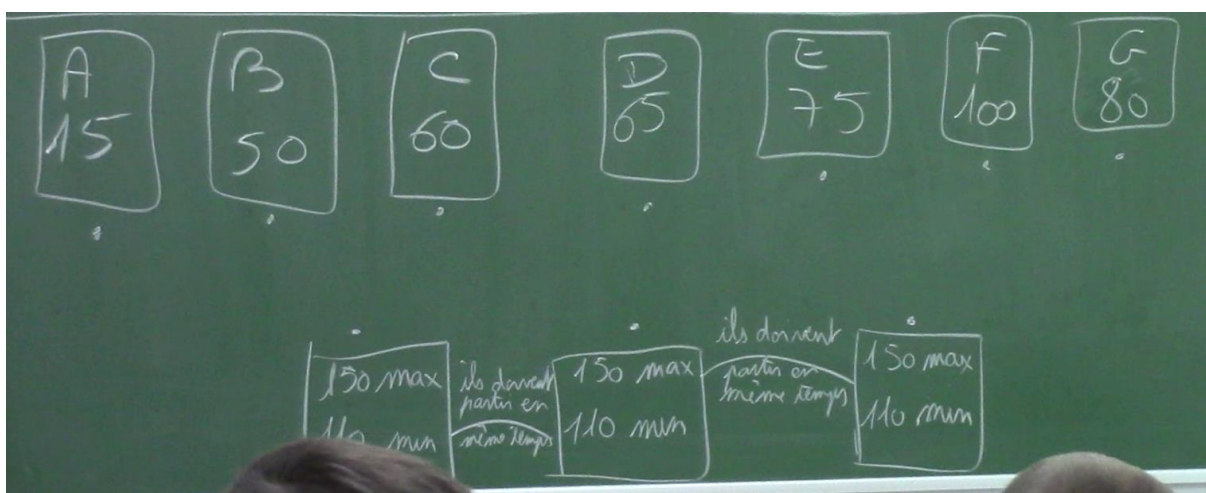 A
15
B
50
C
60
D
65
E
75
F
100
G
80
150 max
110 min
ils doivent
partir en
même temps
150 max
110 min
ils doivent
partir en
même temps
150 max
110 min